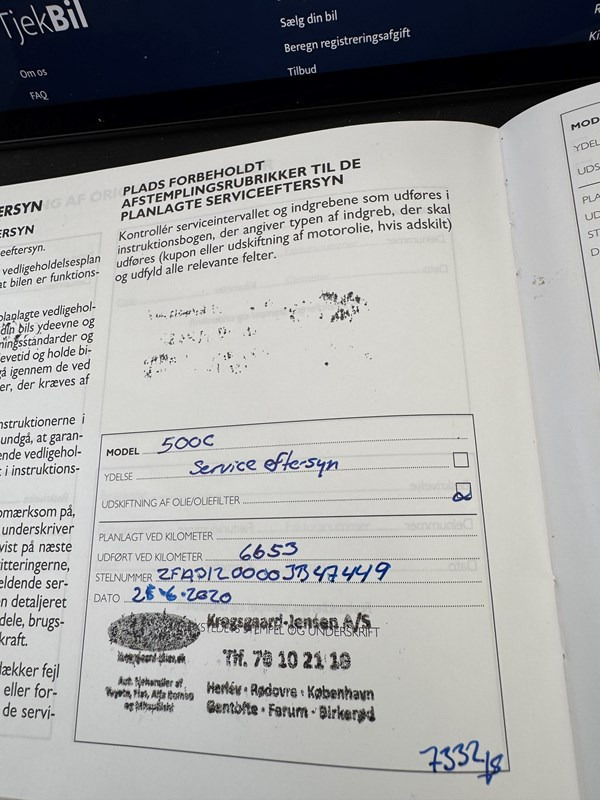 TjekBil
Om os
FAQ
Sælg din bil
Beregn registreringsafgift
Tilbud
PLADS FORBEHOLDT
AFSTEMPLINGSRUBRIKKER TIL DE
PLANLAGTE SERVICEEFTERSYN
Kontrollér serviceintervallet og indgrebene som udføres i
instruktionsbogen, der angiver typen af indgreb, der skal
udføres (kupon eller udskiftning af motorolie, hvis adskilt)
og udfyld alle relevante felter.
ERSYN
ERSYN
eeftersyn.
vedligeholdelsesplan
at bilen er funktions-
planlagte vedligehol-
din bils ydeevne og
ningsstandarder og
evetid og holde bi-
gå igennem de ved
er, der kræves af
nstruktionerne i
undgå, at garan-
ende vedligehol-
t i instruktions-
omærksom på,
underskriver
vist på næste
itteringerne,
eldende ser-
n detaljeret
dele, brugs-
kraft.
dækker fejl
eller for-
de servi-
MODEL 500C
YDELSE Service eftersyn
UDSKIFTNING AF OLIE/OLIEFILTER
PLANLAGT VED KILOMETER
UDFØRT VED KILOMETER 6653
STELNUMMER ZFA3120000JB47449
DATO 26-6-2020
STEMPEL OG UNDERSKRIFT
Krogsgaard-Jensen A/S
Tlf. 70 10 21 10
Aut. forhandler af
Toyota, Fiat, Alfa Romeo
Herlev · Rødovre · København
Gentofte · Farum · Birkerød
7332
MOD
YDEL
UDS
PLA
UD
ST
D